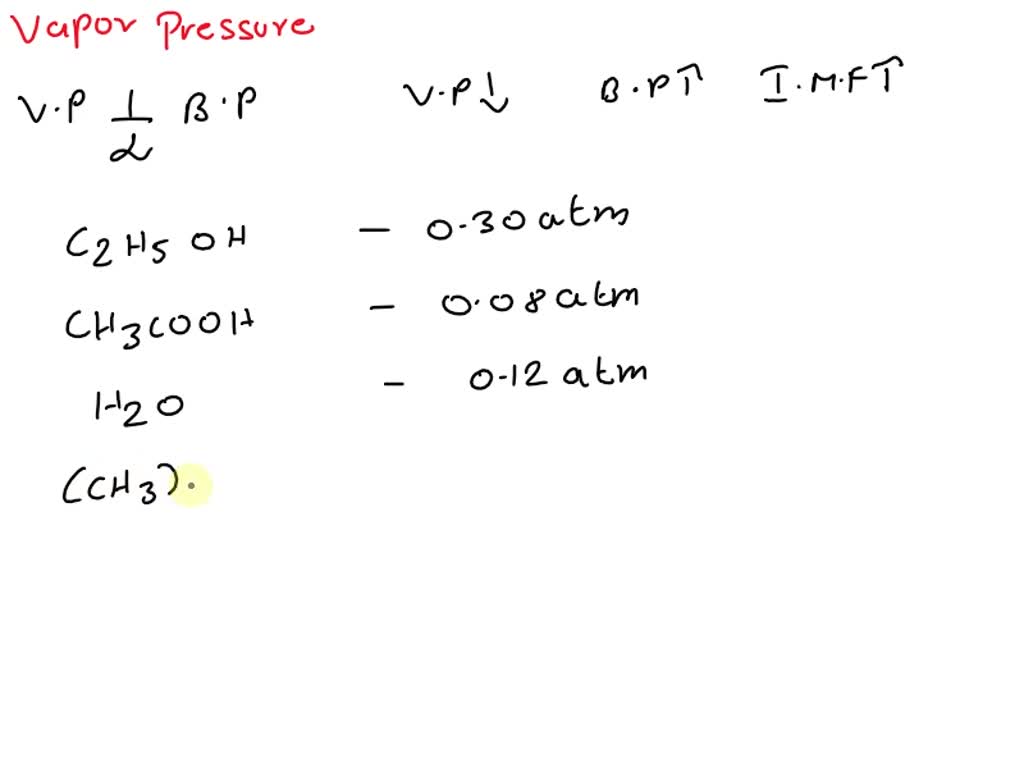 Vapor Pressure
V.P 1/α B.P V.P↓ B.P↑ I.M.F↑
C2H5OH - 0.30 atm
CH3COOH - 0.08 atm
H2O - 0.12 atm
(CH3).